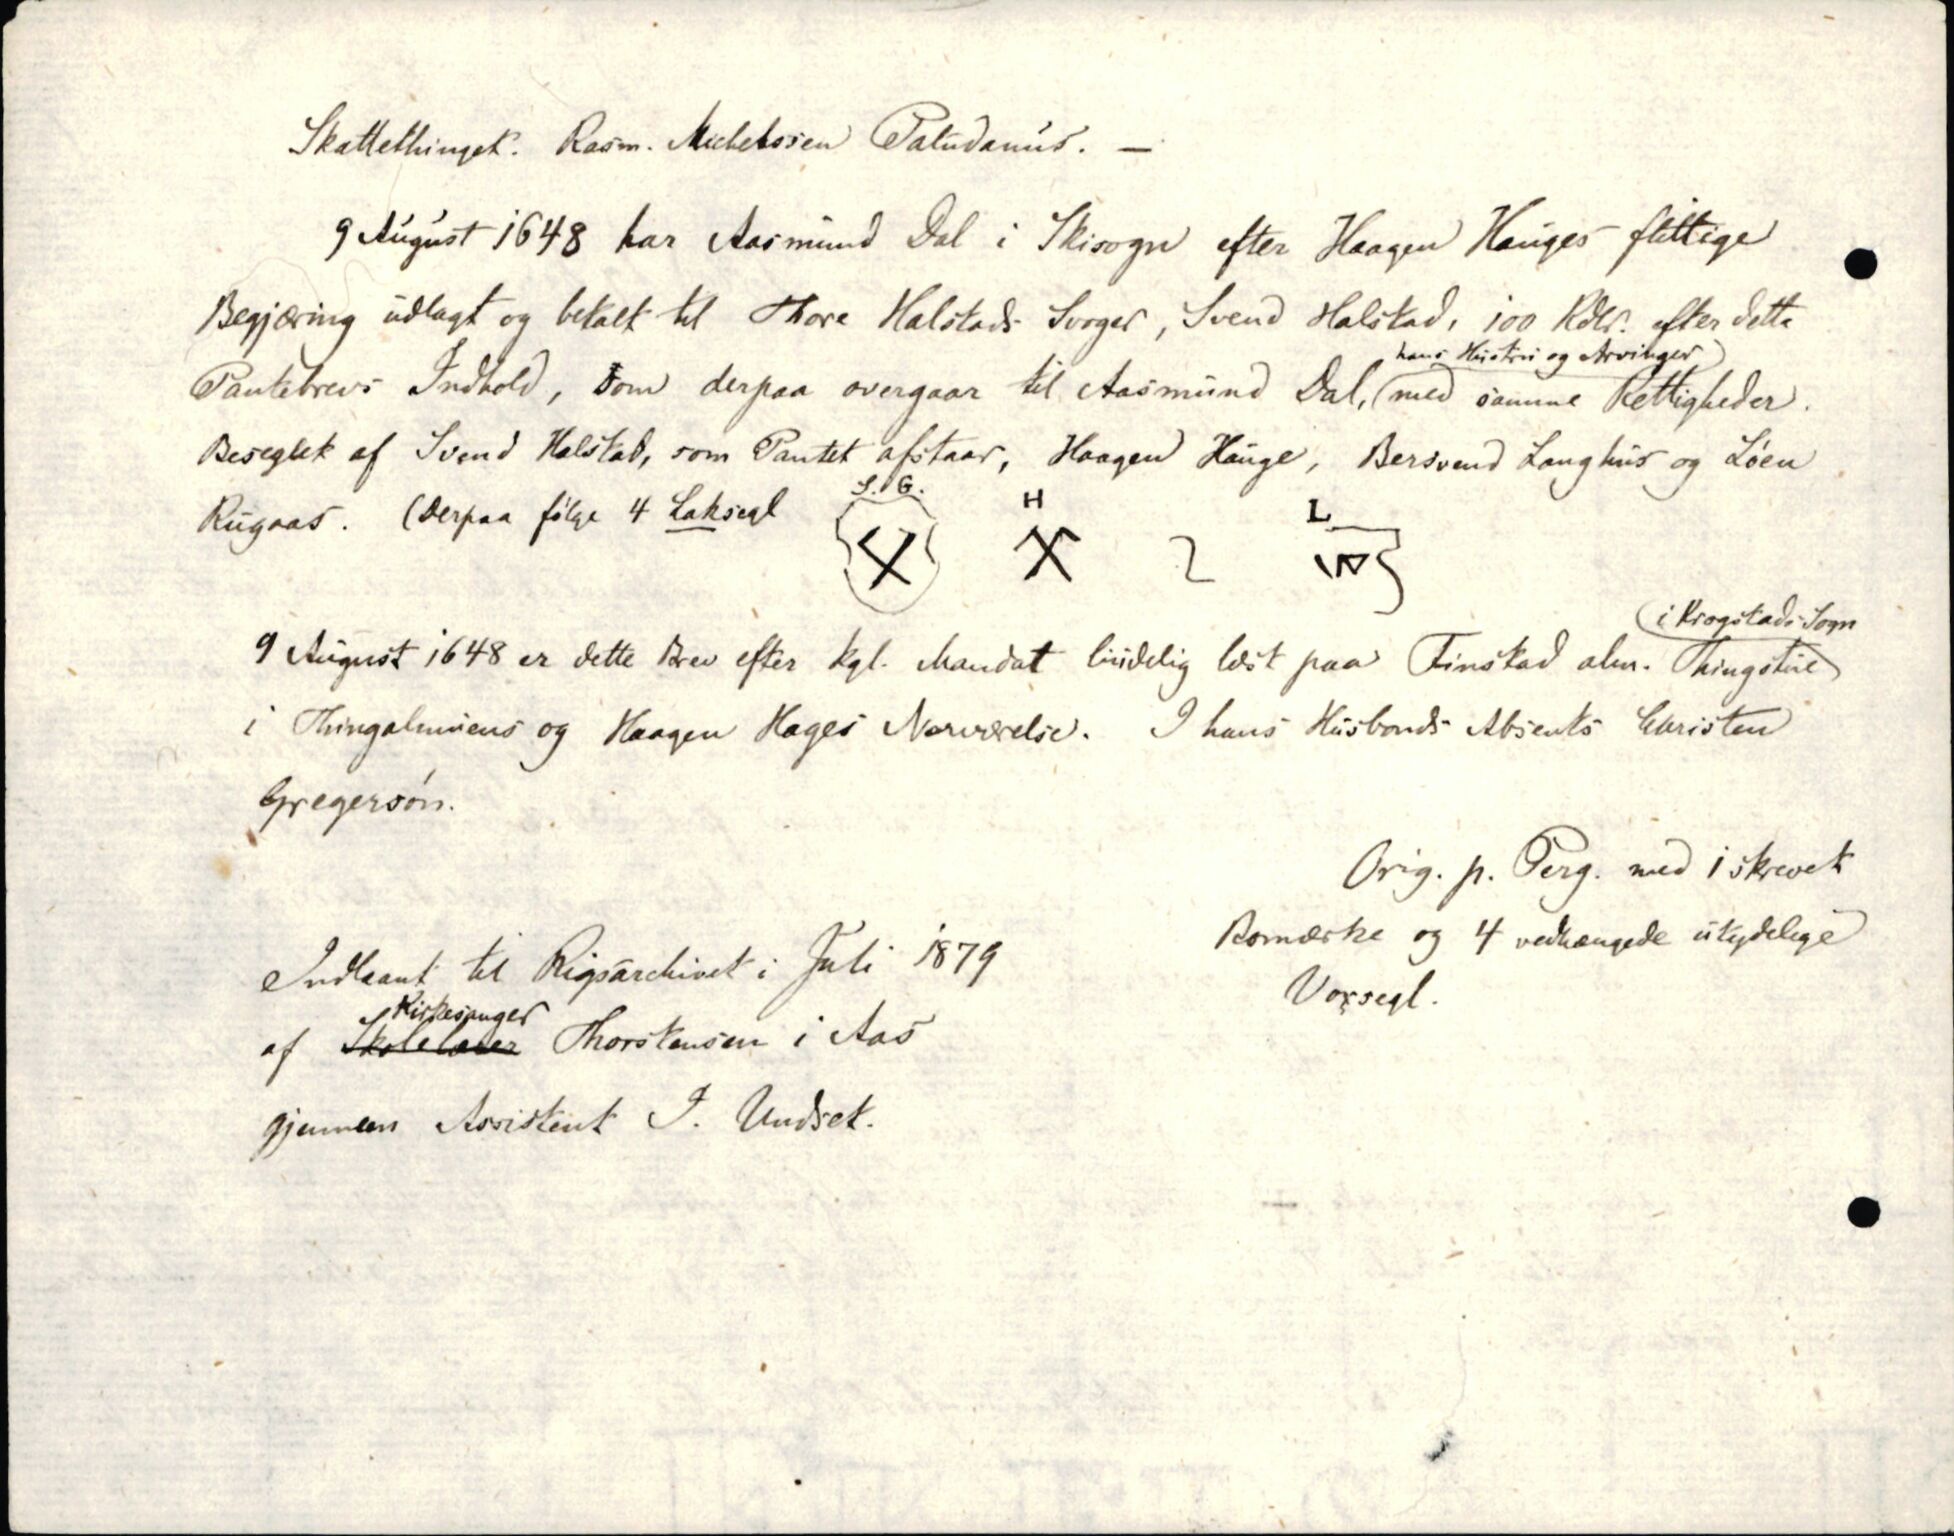 Skattethinget. Rasm. Michelssen Paludanus. —
9 August 1648 har Aasmund Dal i Skisogn efter Haagen Hauges flittige
Begjæring udlagt og betalt til Thore Halstads Svoger, Svend Halstad, 100 Rdlr. efter dette
hans Hustru og Arvinger
Pantebrevs Indhold, som derpaa overgaar til Aasmund Dal, (med samme Rettigheder.
Beseglet af Svend Halstad, som Pantet afstaar, Haagen Hauge, Bersvend Langhus og Löen
Rugaas. (Derpaa følge 4 Laksegl
S. G. H L
i Krogstads Sogn
9 August 1648 er dette Brev efter kgl. Mandat liudelig læst paa Finstad alm. Thingstue
i Thingalmuens og Haagen Hages Nærværelse. I hans Husbonds Absents Christen
Gregersön.
Orig. p. Perg. med 1 skrevet
Bomærke og 4 vedhængede utydelige
Voxsegl.
Indlaant til Rigsarchivet i Juli 1879
Kirkesanger
af Skolelærer Thorstensen i Aas
gjennem Assistent I. Undset.